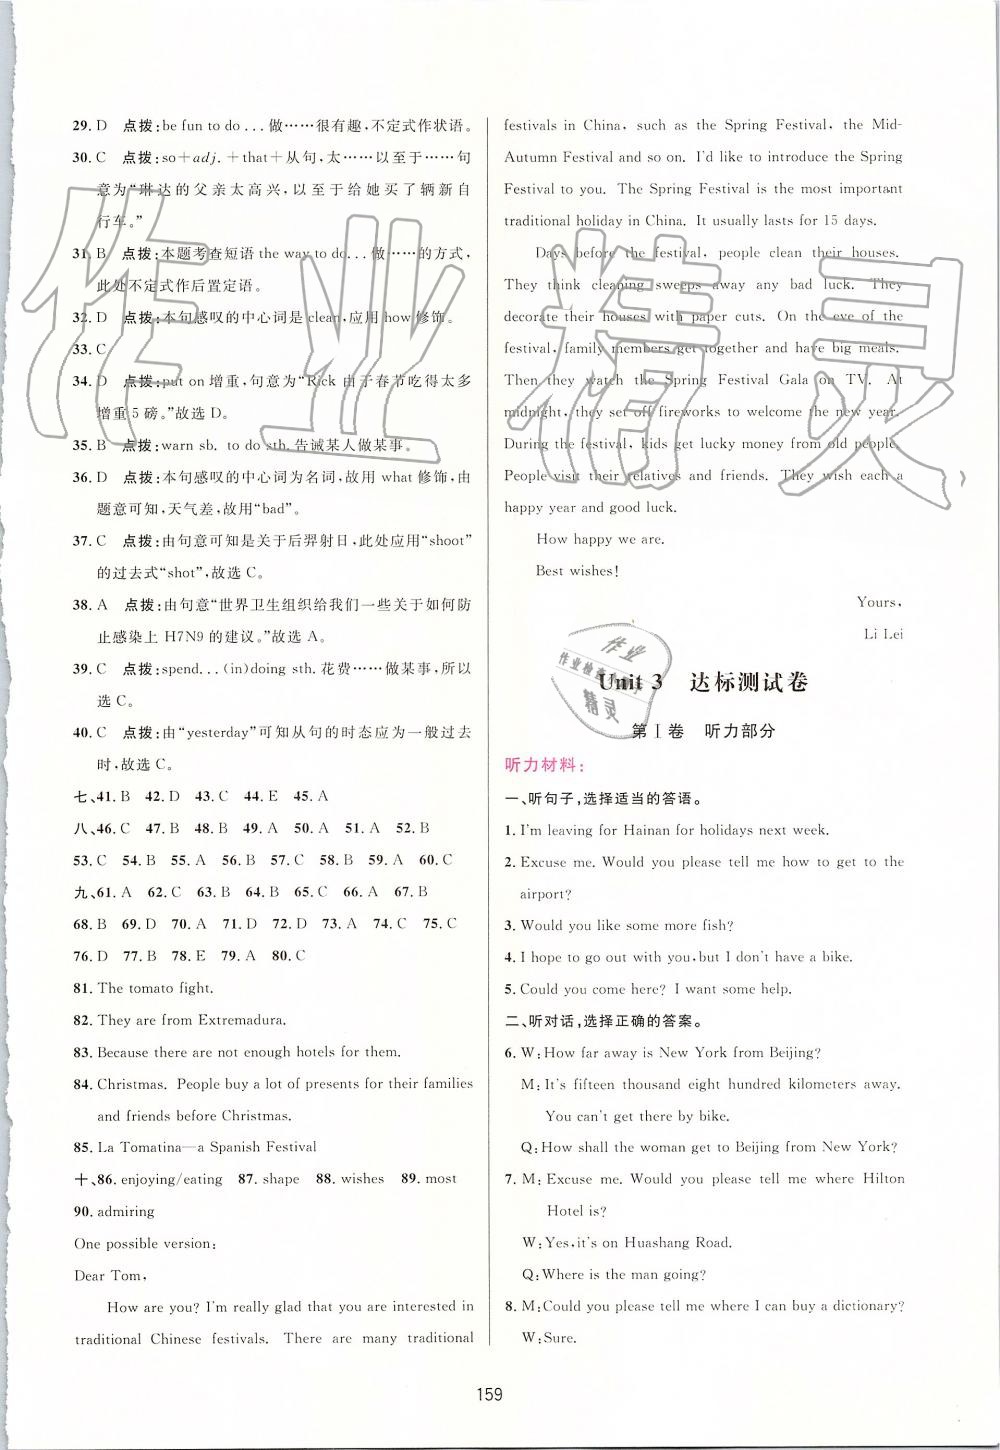 29. D 点拨:be fun to do ... 做……很有趣,不定式作状语。
30. C 点拨:so+adj. +that+从句,太……以至于……句
意为“琳达的父亲太高兴,以至于给她买了辆新自
行车。”
31. B 点拨:本题考查短语 the way to do... 做……的方式,
此处不定式作后置定语。
32. D 点拨:本句感叹的中心词是 clean,应用 how 修饰。
33. C
34. D 点拨:put on 增重,句意为“Rick 由于春节吃得太多
增重 5 磅。”故选 D。
35. B 点拨:warn sb. to do sth. 告诫某人做某事。
36. D 点拨:本句感叹的中心词为名词,故用 what 修饰,由
题意可知,天气差,故用“bad”。
37. C 点拨:由句意可知是关于后羿射日,此处应用“shoot”
的过去式“shot”,故选 C。
38. A 点拨:由句意“世界卫生组织给我们一些关于如何防
止感染上 H7N9 的建议。”故选 A。
39. C 点拨:spend...(in)doing sth. 花费……做某事,所以
选 C。
40. C 点拨:由“yesterday”可知从句的时态应为一般过去
时,故选 C。
七、41. B 42. D 43. C 44. E 45. A
八、46. C 47. B 48. B 49. A 50. A 51. A 52. B
53. C 54. B 55. A 56. B 57. C 58. B 59. A 60. C
九、61. A 62. C 63. B 64. B 65. C 66. A 67. B
68. B 69. D 70. A 71. D 72. D 73. A 74. C 75. C
76. D 77. B 78. E 79. A 80. C
81. The tomato fight.
82. They are from Extremadura.
83. Because there are not enough hotels for them.
84. Christmas. People buy a lot of presents for their families
and friends before Christmas.
85. La Tomatina—a Spanish Festival
十、86. enjoying/eating 87. shape 88. wishes 89. most
90. admiring
One possible version:
Dear Tom,
How are you? I'm really glad that you are interested in
traditional Chinese festivals. There are many traditional
festivals in China, such as the Spring Festival, the Mid-
Autumn Festival and so on. I'd like to introduce the Spring
Festival to you. The Spring Festival is the most important
traditional holiday in China. It usually lasts for 15 days.
Days before the festival, people clean their houses.
They think cleaning sweeps away any bad luck. They
decorate their houses with paper cuts. On the eve of the
festival, family members get together and have big meals.
Then they watch the Spring Festival Gala on TV. At
midnight, they set off fireworks to welcome the new year.
During the festival, kids get lucky money from old people.
People visit their relatives and friends. They wish each a
happy year and good luck.
How happy we are.
Best wishes!
Yours,
Li Lei
Unit 3 达标测试卷
第Ⅰ卷 听力部分
听力材料:
一、听句子,选择适当的答语。
1. I'm leaving for Hainan for holidays next week.
2. Excuse me. Would you please tell me how to get to the
airport?
3. Would you like some more fish?
4. I hope to go out with you, but I don't have a bike.
5. Could you come here? I want some help.
二、听对话,选择正确的答案。
6. W: How far away is New York from Beijing?
M: It's fifteen thousand eight hundred kilometers away.
You can't get there by bike.
Q: How shall the woman get to Beijing from New York?
7. M: Excuse me. Would you please tell me where Hilton
Hotel is?
W: Yes, it's on Huashang Road.
Q: Where is the man going?
8. M: Could you please tell me where I can buy a dictionary?
W: Sure.
159
作业精灵
作业
作业检查小助手
精灵